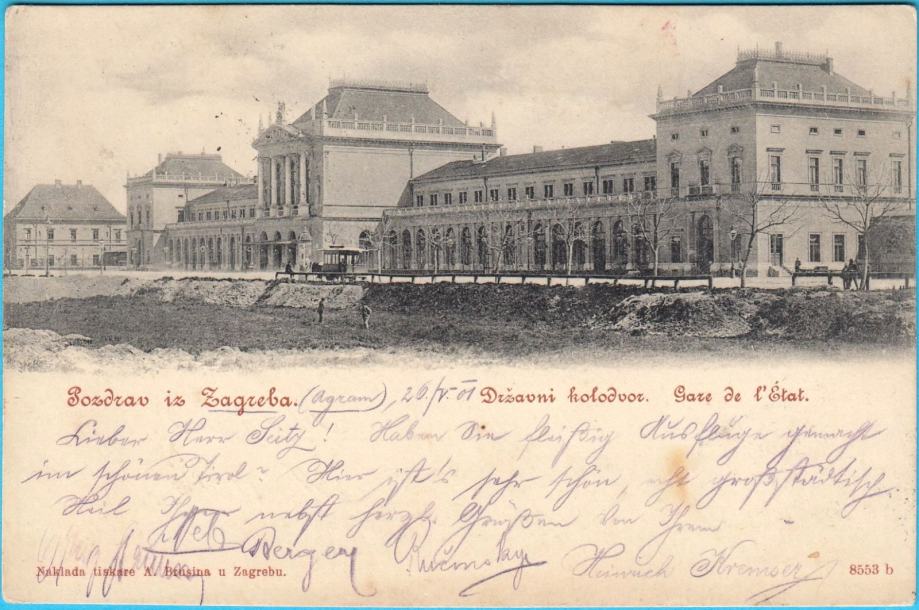 Pozdrav iz Zagreba. (Agram), 26/V. 01 Državni kolodvor. Gare de l'État.
Lieber Herr Seitz! Haben Sie fleißig Ausfluge gemacht
im schönen Tirol? Hier ist's sehr schön, echt großstädtisch.
Heil Ihnen nebst herzl. Grüßen von Ihrem
Berger Heinrich Kremser
Naklada tiskare A. Brusina u Zagrebu. 8553 b